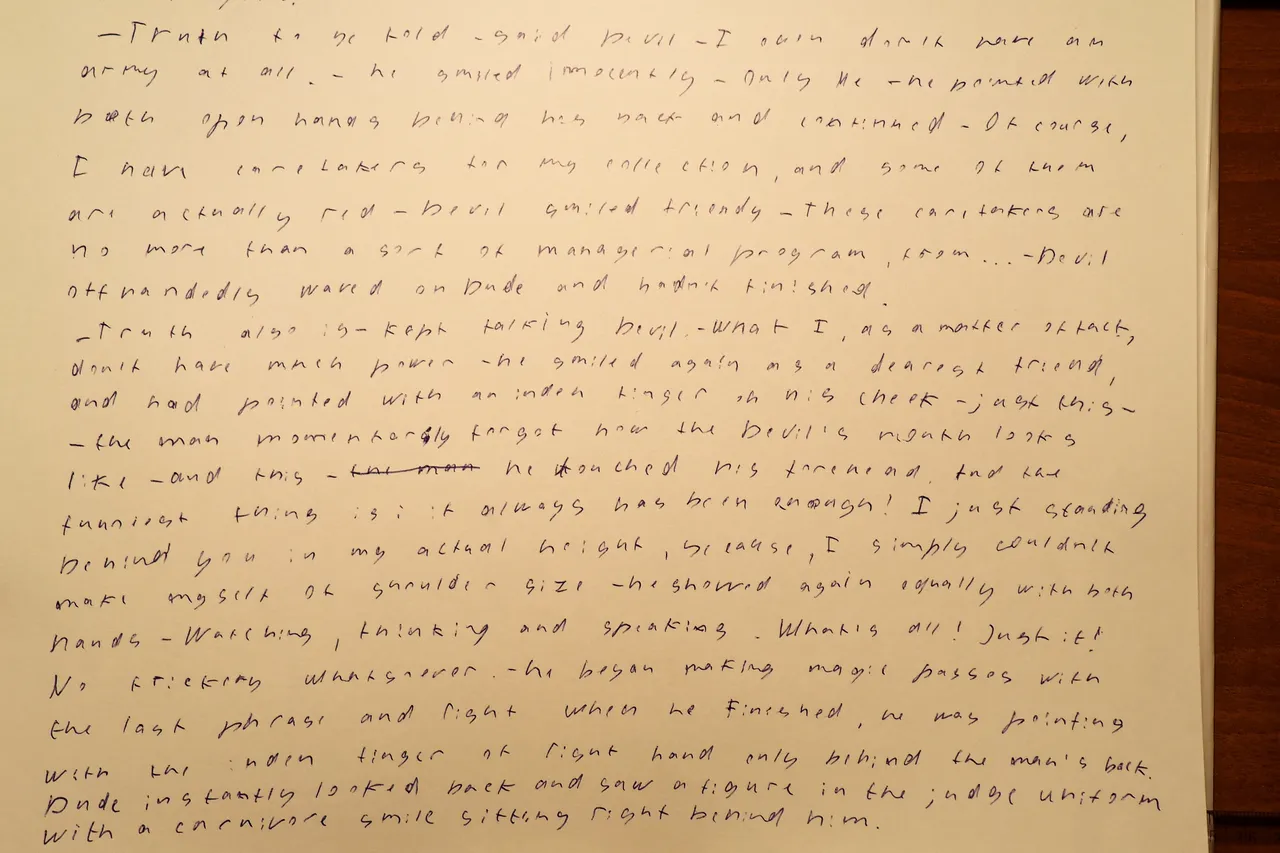 -Truth to be told -said Devil -I own don't have an
army at all. - he smiled innocently - Only He -he pointed with
both open hands behind his back and continued - Of course,
I have caretakers for my collection, and some of them
are actually red - Devil smiled friendy - These caretakers are
no more than a sort of managerial program, from... -Devil
offhandedly waved on Dude and hadn't finished.
-Truth also is- kept talking Devil. -What I, as a matter of fact,
don't have much power -he smiled again as a dearest friend,
and had pointed with an inden finger on his cheek -just this-
-the man momentarily forgot how the Devil's mouth looks
like -and this - he touched his forehead. And the
funniest thing is: it always has been enough! I just standing
behind you in my actual height, because, I simply couldn't
make myself of shoulder size -he showed again equally with both
hands - Watching, thinking and speaking. What's all! Just it!
No trickery whatsoever. -he began making magic passes with
the last phrase and right when he fineshed, he was pointing
with the inden finger of right hand only behind the man's back.
Dude instantly looked back and saw a figure in the judge uniform
with a carnivore smile sitting right behind him.